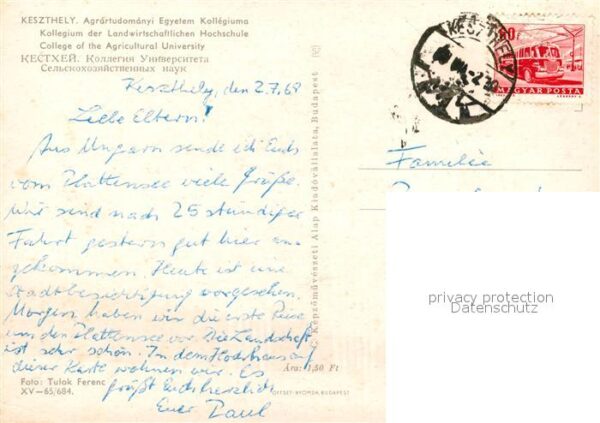 KESZTHELY. Agrártudományi Egyetem Kollégiuma
Kollegium der Landwirtschaftlichen Hochschule
College of the Agricultural University
КЕСТХЕЙ. Коллегия Университета
Сельскохозяйственных наук
Keszthely, den 2.7.68
Liebe Eltern!
Aus Ungarn sende ich Euch
vom Plattensee viele Grüße.
Wir sind nach 25 stündiger
Fahrt gestern gut hier an-
gekommen. Heute ist eine
Stadtbesichtigung vorgesehen.
Morgen haben wir die erste Reise
um den Plattensee vor. Die Landschaft
ist sehr schön. In dem Hochhaus auf
dieser Karte wohnen wir. Es
grüßt Euch herzlich
Euer Paul
Foto: Tulok Ferenc
XV–65/684.
Ára: 1,50 Ft
OFFSET-NYOMDA, BUDAPEST
Képzőművészeti Alap Kiadóvállalata, Budapest
KESZTHELY
MAGYAR POSTA
Familie
privacy protection
Datenschutz